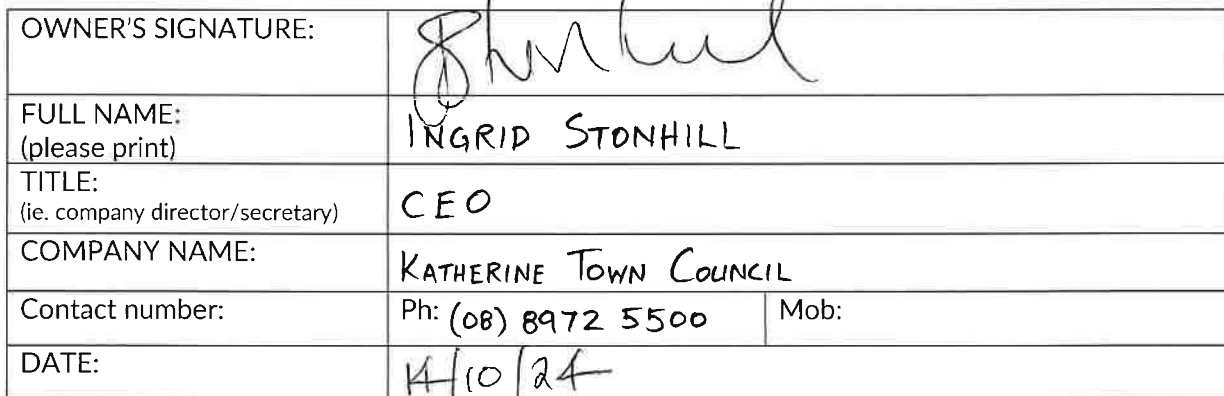 OWNER'S SIGNATURE:
FULL NAME:
(please print)
INGRID STONHILL
TITLE:
(ie. company director/secretary)
CEO
COMPANY NAME:
KATHERINE TOWN COUNCIL
Contact number:
Ph: (08) 8972 5500
Mob:
DATE:
14/10/24